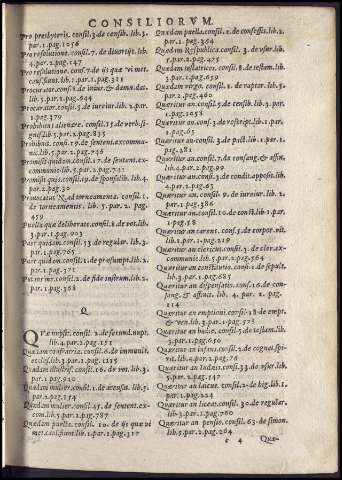 CONSILIORVM.
Pro presbyteris. consil.3.de censib. lib.3.
par.1.pag.1056
Pro resolutione. consil.7. de diuortijs. lib.
4.par.2.pag.147
Pro resolutione. consil.7 de ijs quæ vi met.
caus.fiunt. lib.1.par.1.pag.311
Procurator. consil.8. de iniur. & damn. dat.
lib.5.par.2.pag.944
Procurator. consil.5.de iureiur. lib.2.par.
1.pag.379
Prohibitus alienare. consil.15. de verb. sig-
nif. lib.5.par.2.pag.835
Prohibitus. consil.19. de senten. commu-
nic. lib.5.par.2.pag.748
Promisit quidam. consil.17. de senten. ex-
communic. lib.5.par.2.pag.741
Promisit quis. consil.19. de sponsalib. lib.4.
par.2.pag.30
Prouocatus. Nad torneamenta. consil.1.
de torneamentis. lib.5. par.2. pag.
459
Publicè que deliberatè. consil.8. de vot. lib.
3.par.1.pag.903
Puer quidam. consil.33. de regular. lib.3.
par.1.pag.765
Puer quidam. consil.1. de præsumpt. lib.2.
par.1.pag.371
consil.2. de fide instrum. lib.2.
par.1.pag.368
Q
Quæ mysit. consil.2. de secund. nupt.
lib.4.par.2.pag.151
Quædam confratria. consil.6. de immunit.
eccles. lib.3.par.1.pag.1125
Quædam illustriss. consil.16. de vot. lib.3.
par.1.pag.910
Quædam mulier. consil.2. de accusat. lib.5.
par.2.pag.154
Quædam mulier. consil.45. de senten. ex-
commu. lib.5.par.2.pag.787
Quædam puella. consil. 10. de ijs quæ vi
met. caus. fiunt. lib.1.par.1.pag.317
Quædam puella. consil.1. de confessis. lib.2.
par.1.pag.364
Quædam Respublica. consil.3. de vsur. lib.
5.par.2.pag.475
Quædam testatrix. consil.8. de testam. lib.
3.par.1.pag.659
Quædam virgo. consil.1. de raptor. lib.5.
par.2.pag.460
Quæritur an. consil.5. de censib. lib.3.par.
1.pag.1058
Quæritur an. cons.3. de rescript. lib.1. par.
1.pag.65
Quæritur an. consil.3. de pact. lib.1.par.1.
pag.281
Quæritur an. consil.7. de consang. & affin.
lib.4.par.2.pag.99
Quæritur an. consil.3. de condit. apposit. lib.
4.par.2.pag.63
Quæritur an. consil. 9. de iureiur. lib.2.
par.1.pag.386
Quæritur an. consil.10. de const. lib.1.par.
1.pag.18
Quæritur an carens. consil.5. de corpor. vit.
lib.1.par.1.pag.219
Quæritur an clericus. consil.3. de cler. ex-
commun. lib.5.par.2.pag.564
Quæritur an constitutio. consil.1. de sepult.
lib.3.par.1.pag.685
Quæritur an dispensatio. consil.16. de con-
sang. & affinit. lib. 4. par. 2. pag.
114
Quæritur an emptioni. consil.18. de empt.
& ven. lib.3.par.1.pag.573
Quæritur an hodie. consil.5. de testam. lib.
3.par.1.pag.650
Quæritur an infans. consil.2. de cognat. spi-
rit. lib.4.par.2.pag.76
Quæritur an Iudæi. consil.33. de vsur. lib.
5.par.2.pag.547
Quæritur an laicus. consil.2. de big. lib.1.
par.1.pag.224
Quæritur an liceat. consil.30. de regular.
lib.3.par.1.pag.760
Quæritur an pensio. consil. 63. de simon.
lib.5.par.2.pag.264
e 4 Quæ-